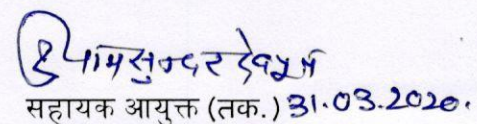 श्यामसुन्दर देवपुर्ज
सहायक आयुक्त (तक.) 31.03.2020.